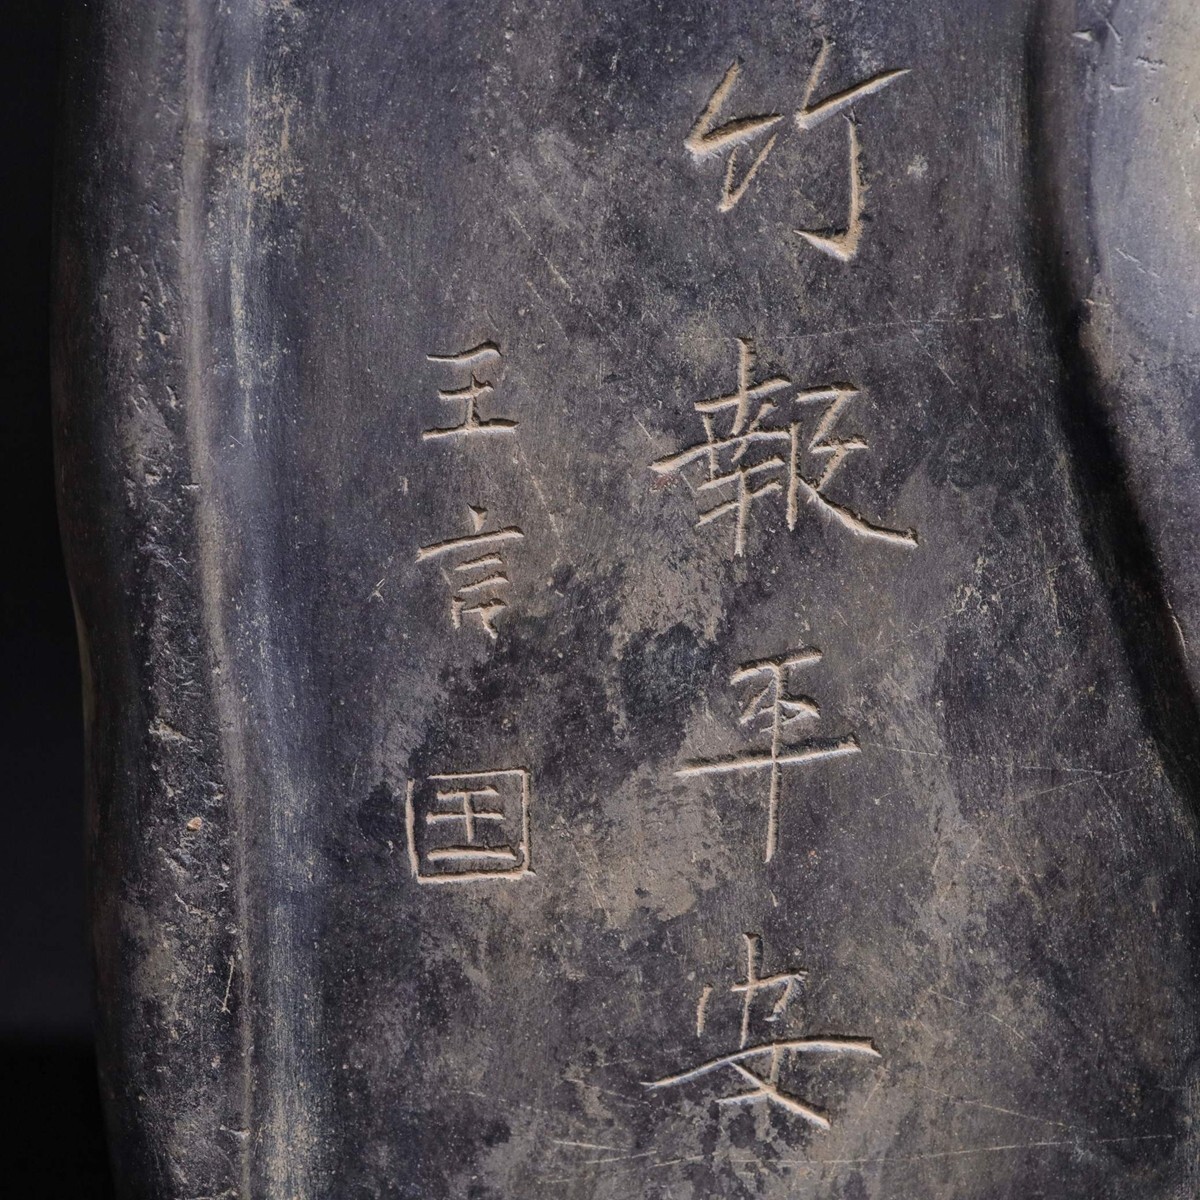 竹報平安
王言
王